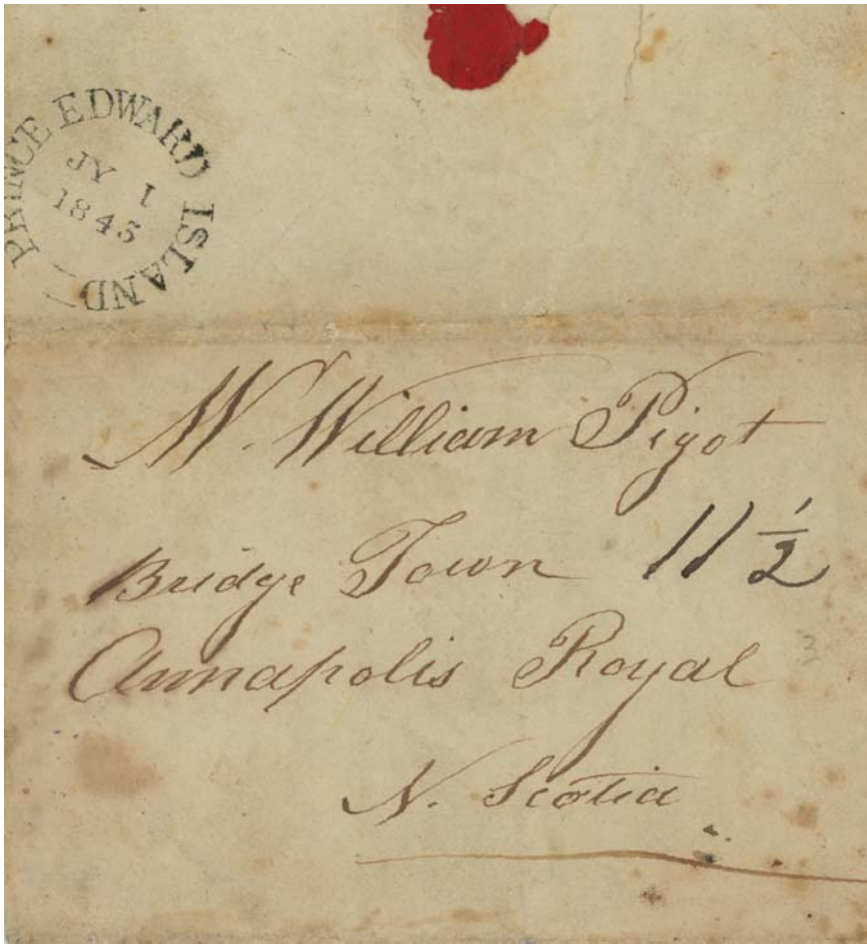 PRINCE EDWARD ISLAND
JY 1
1845
W. William Pigot
Bridge Town 11 1/2
Annapolis Royal
3
N. Scotia